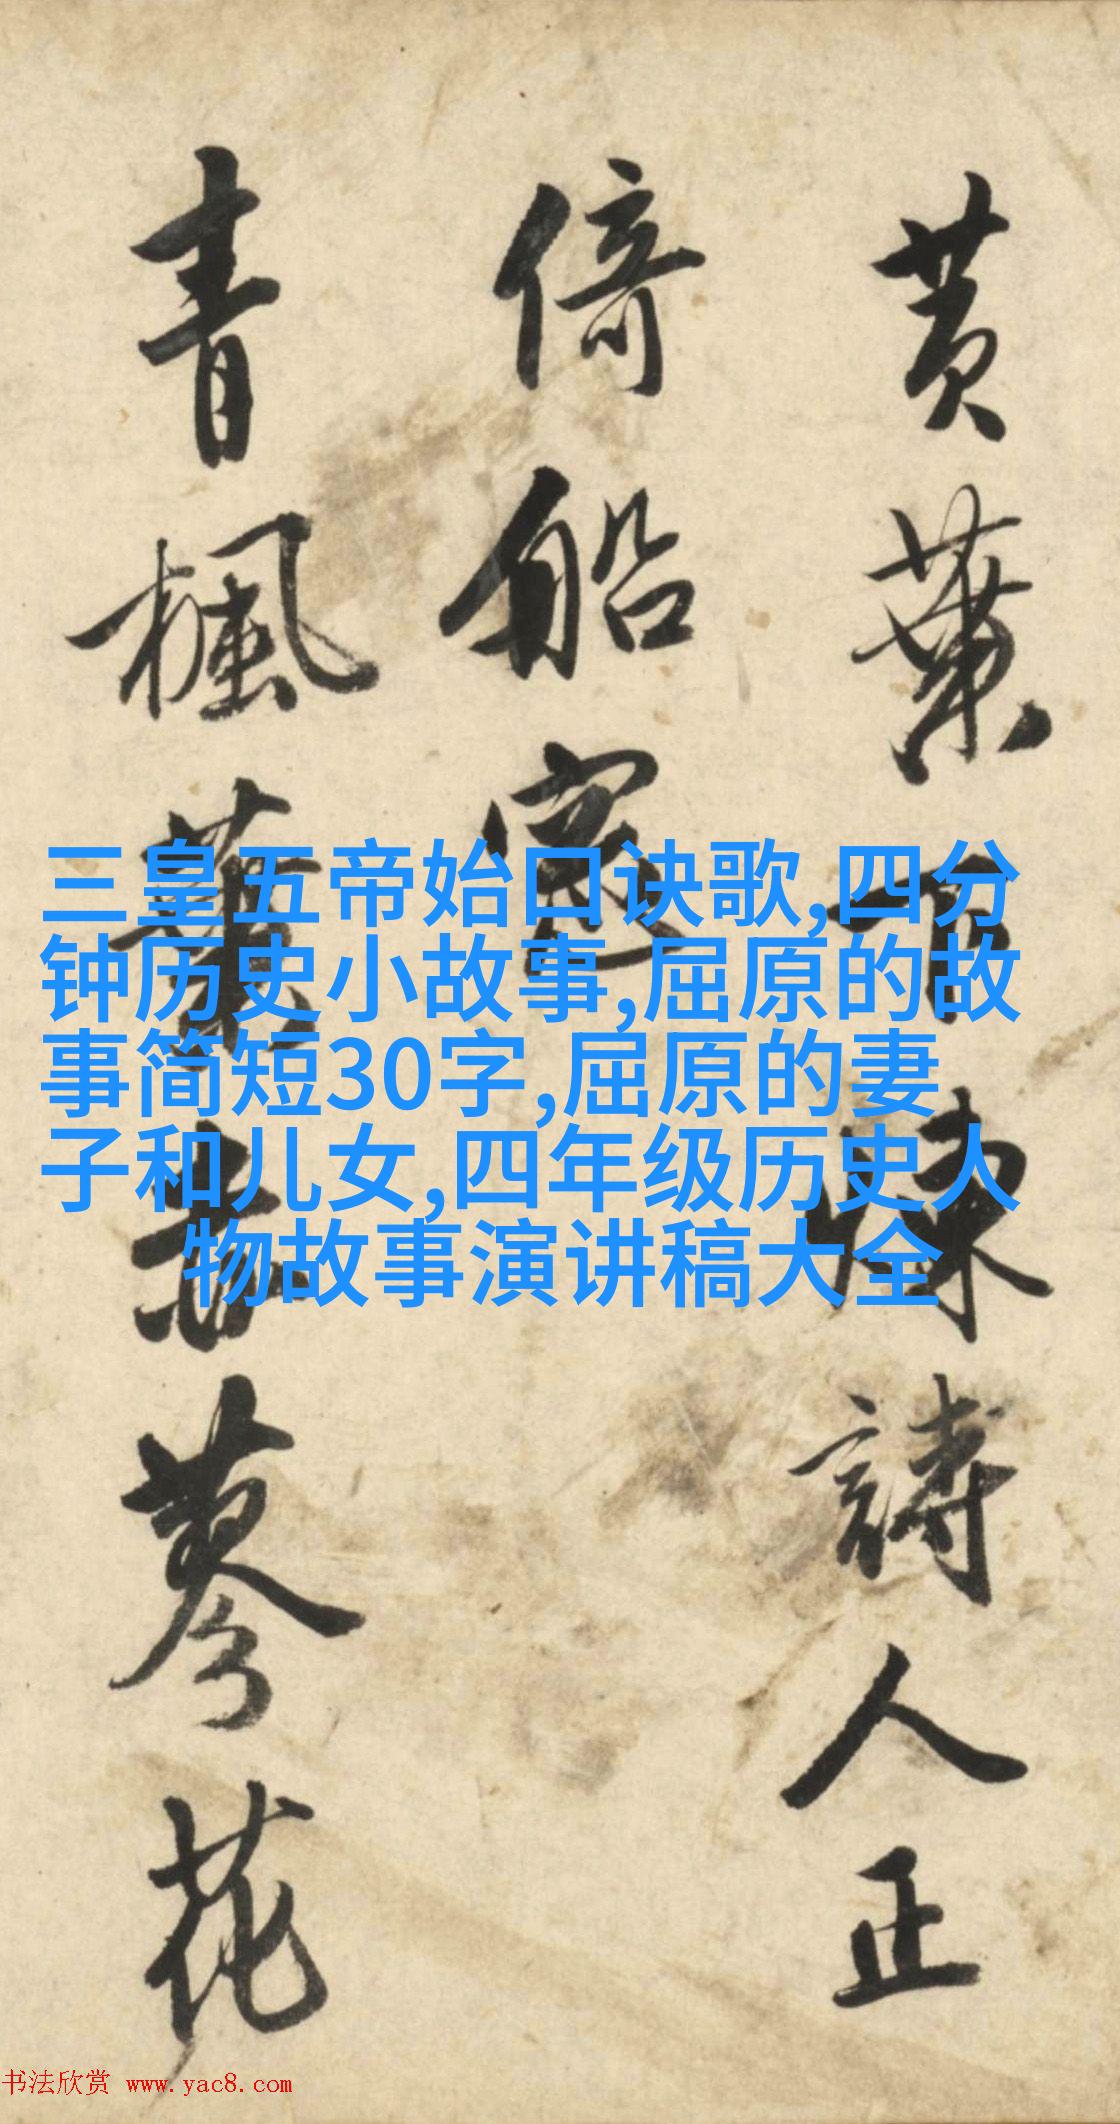 黄葉下陳詩人正
倚船窓
青楓葉赤蓼花
三皇五帝始口诀歌,四分
钟历史小故事,屈原的故
事简短30字,屈原的妻
子和儿女,四年级历史人
物故事演讲稿大全
书法欣赏 www.yac8.com